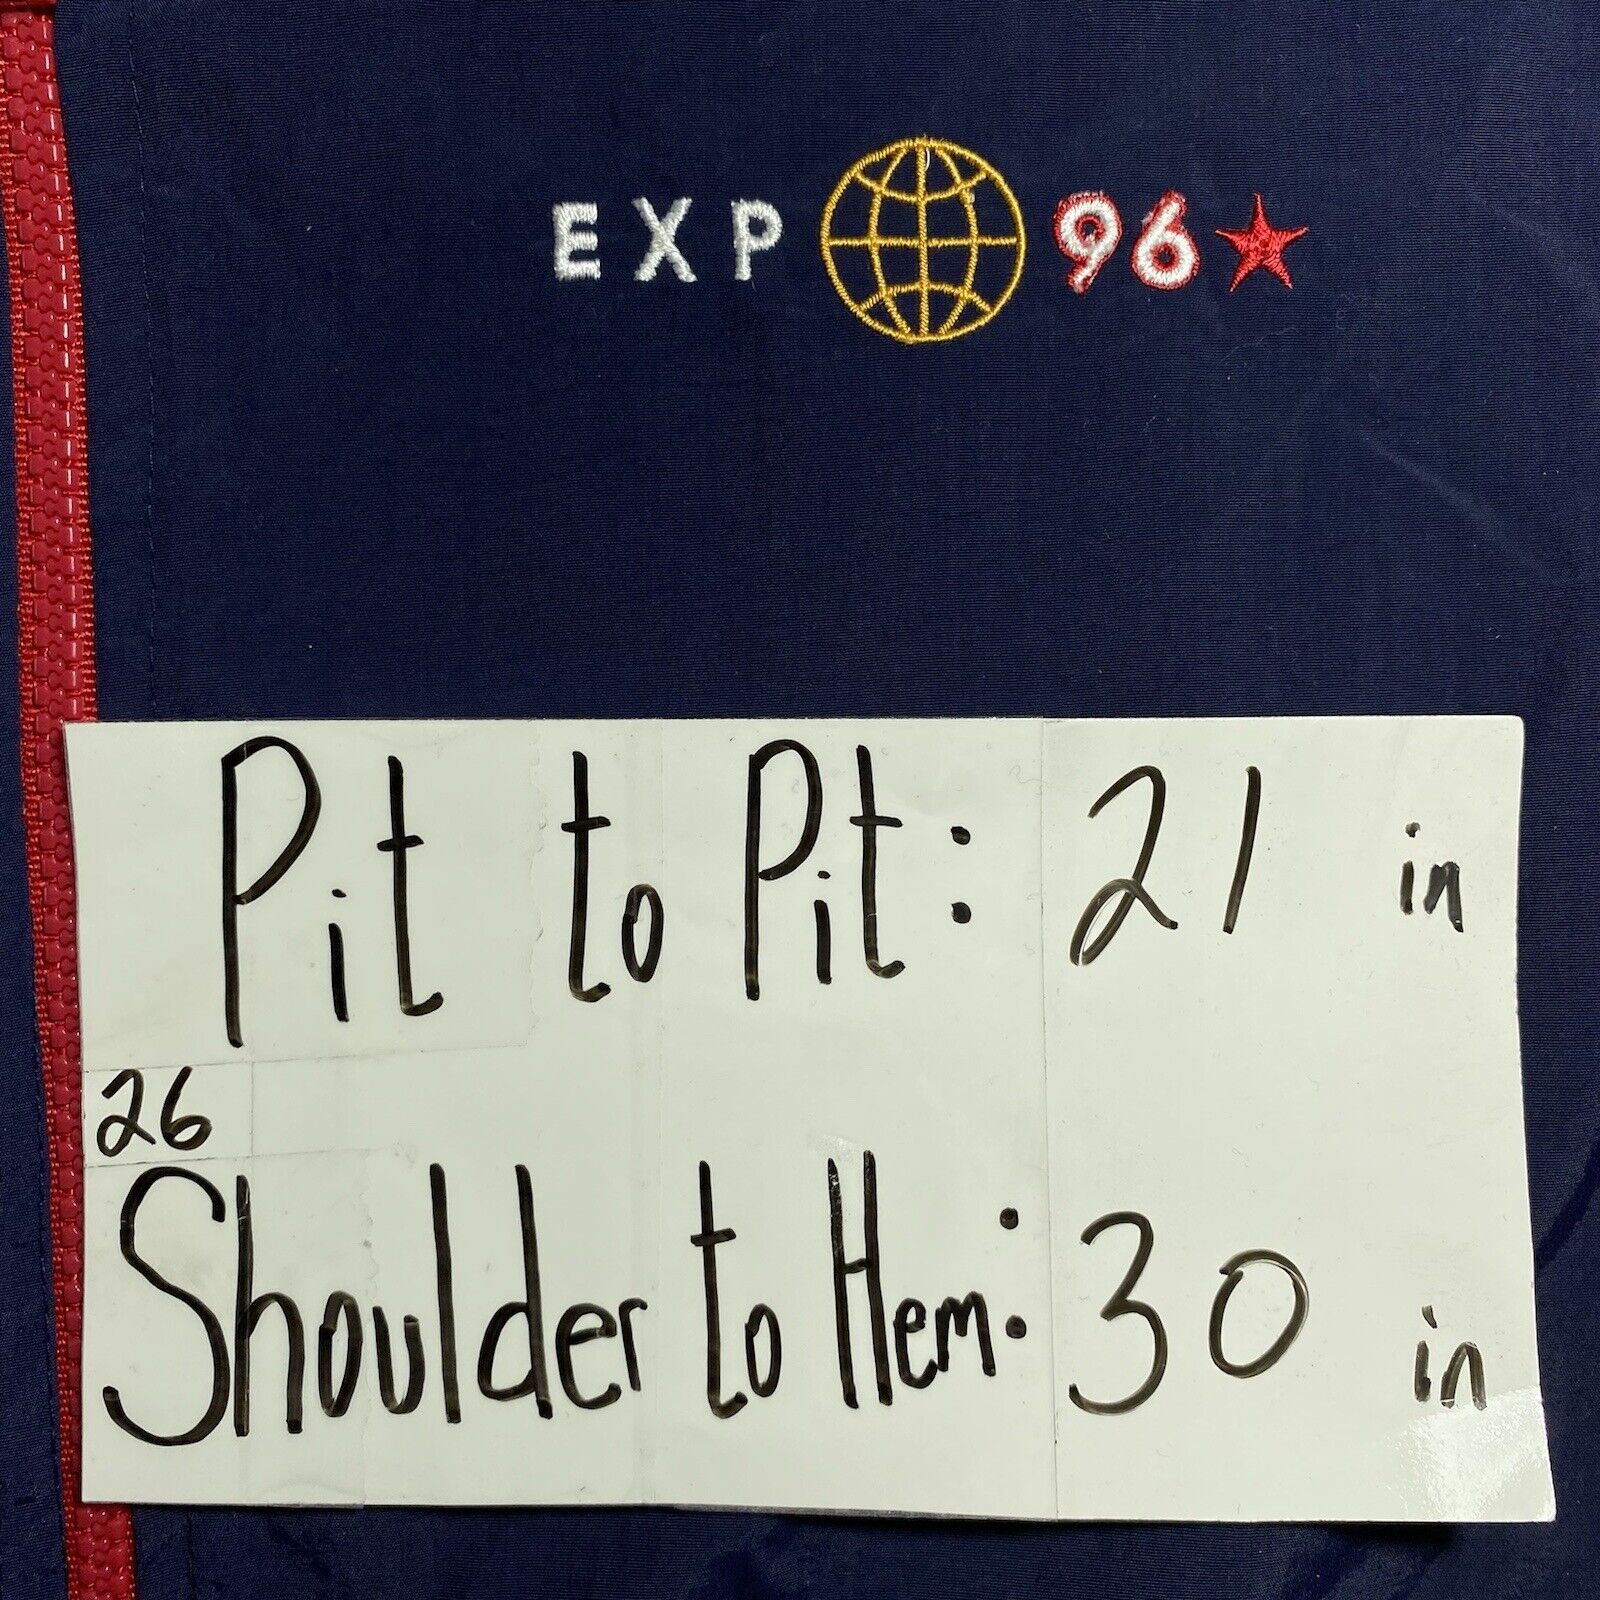 EXP 96
Pit to Pit: 21 in
26
Shoulder to Hem: 30 in